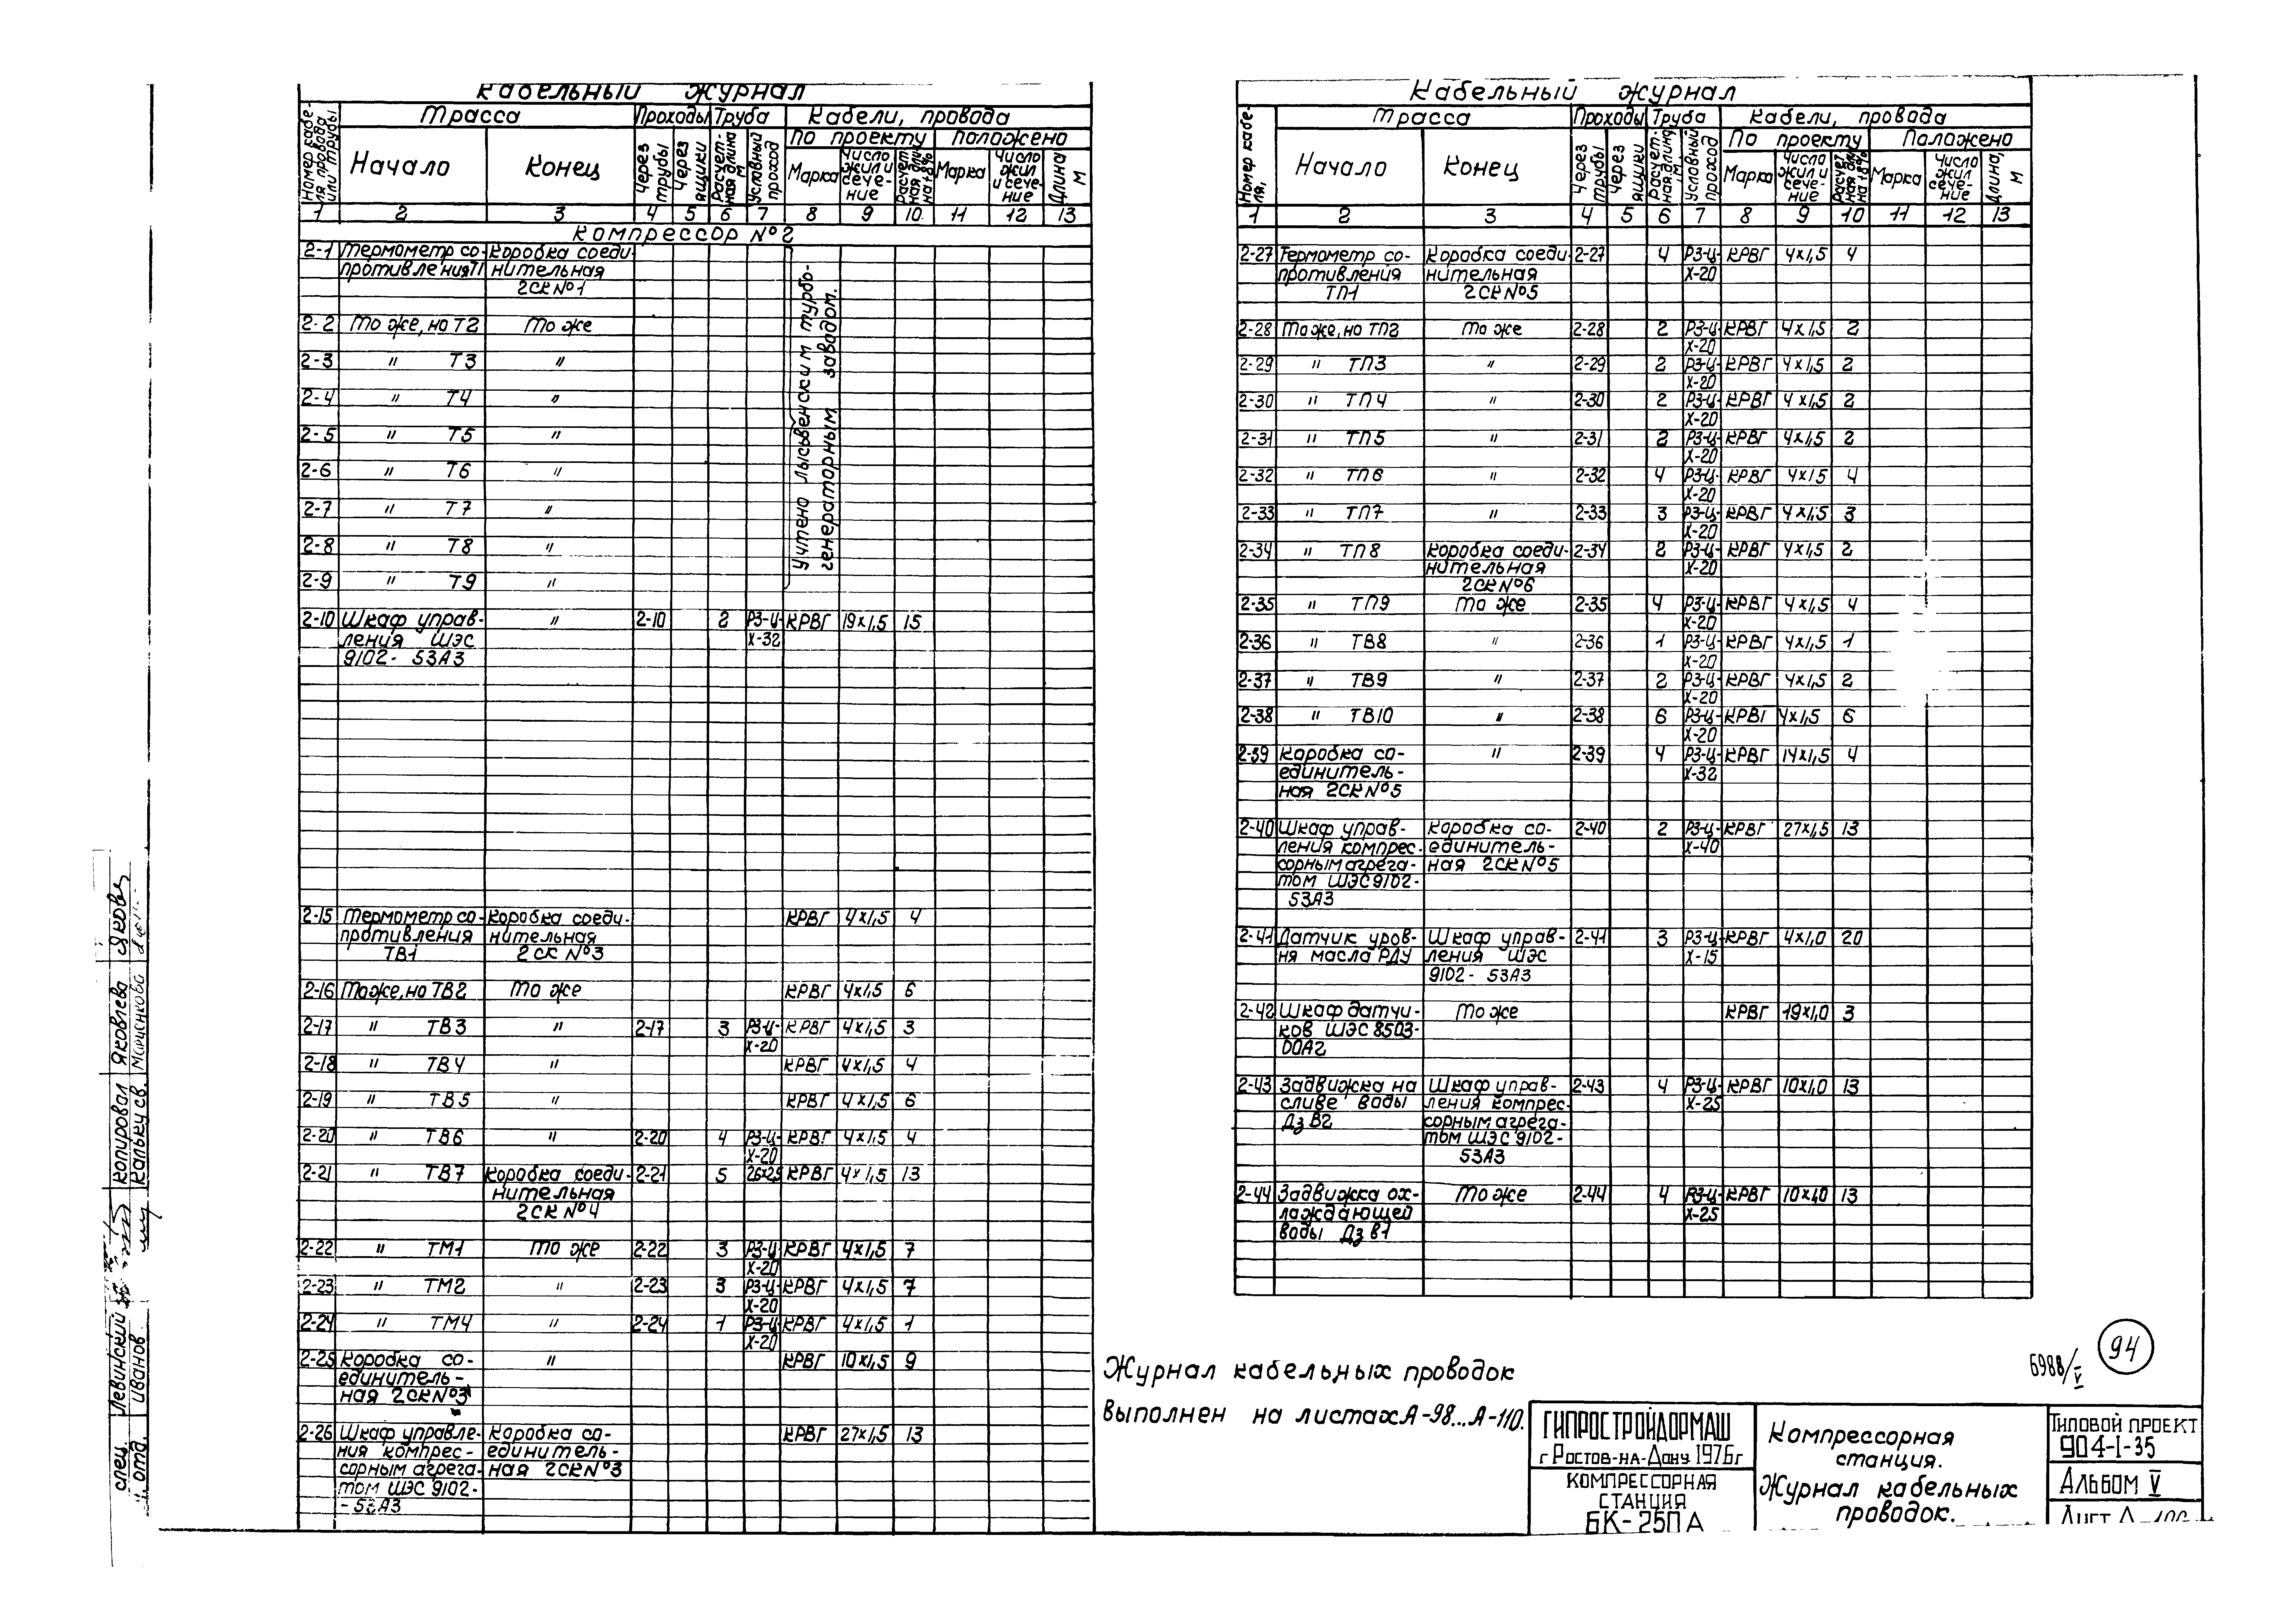 Кабельный журнал
Номер кабеля, провода или трубы
Трасса
Проходы
Труба
Кабели, провода
По проекту
Положено
Начало
Конец
Через трубы
Через ящики
Расчетная длина м
Условный проход
Марка
Число жил и сечение
Расчетная длина +8%
Марка
Число жил и сечение
Длина м
1 2 3 4 5 6 7 8 9 10 11 12 13
Компрессор №2
2-1 Термометр со- Коробка соеди-
противления Т1 нительная
2СК №1
Учтено лысьвенским турбо-
генераторным заводом.
2-2 То же, но Т2 То же
2-3 " Т3 "
2-4 " Т4 "
2-5 " Т5 "
2-6 " Т6 "
2-7 " Т7 "
2-8 " Т8 "
2-9 " Т9 "
2-10 Шкаф управ- " 2-10 2 РЗ-Ц- КРВГ 19х1,5 15
ления ШЭС Х-32
9102- 53А3
2-15 Термометр со- Коробка соеди- КРВГ 4х1,5 4
противления нительная
ТВ1 2СК №3
2-16 То же, но ТВ2 То же КРВГ 4х1,5 6
2-17 " ТВ3 " 2-17 3 РЗ-Ц- КРВГ 4х1,5 3
Х-20
2-18 " ТВ4 " КРВГ 4х1,5 4
2-19 " ТВ5 " КРВГ 4х1,5 6
2-20 " ТВ6 " 2-20 4 РЗ-Ц- КРВГ 4х1,5 4
Х-20
2-21 " ТВ7 Коробка соеди- 2-21 5 26х2,5 КРВГ 4х1,5 13
нительная
2СК №4
2-22 " ТМ1 То же 2-22 3 РЗ-Ц КРВГ 4х1,5 7
Х-20
2-23 " ТМ2 " 2-23 3 РЗ-Ц- КРВГ 4х1,5 7
Х-20
2-24 " ТМ4 " 2-24 1 РЗ-Ц КРВГ 4х1,5 1
Х-20
2-25 Коробка со- " КРВГ 10х1,5 9
единитель-
ная 2СК №3
2-26 Шкаф управле- Коробка со- КРВГ 27х1,5 13
ния компрес- единитель-
сорным агрега- ная 2СК №3
том ШЭС 9102-
- 53А3
Кабельный журнал
Номер кабеля,
Трасса
Проходы
Труба
Кабели, провода
По проекту
Положено
Начало
Конец
Через трубы
Через ящики
Расчетная длина, м
Условный проход
Марка
Число жил и сечение
Расчетная длина +8%
Марка
Число жил сечение
Длина, м
1 2 3 4 5 6 7 8 9 10 11 12 13
2-27 Термометр со- Коробка соеди- 2-27 4 РЗ-Ц- КРВГ 4х1,5 4
противления нительная Х-20
ТП1 2СК №5
2-28 То же, но ТП2 То же 2-28 2 РЗ-Ц- КРВГ 4х1,5 2
Х-20
2-29 " ТП3 " 2-29 2 РЗ-Ц- КРВГ 4х1,5 2
Х-20
2-30 " ТП4 " 2-30 2 РЗ-Ц- КРВГ 4х1,5 2
Х-20
2-31 " ТП5 " 2-31 2 РЗ-Ц- КРВГ 4х1,5 2
Х-20
2-32 " ТП6 " 2-32 4 РЗ-Ц- КРВГ 4х15 4
Х-20
2-33 " ТП7 " 2-33 3 РЗ-Ц- КРВГ 4х1,5 3
Х-20
2-34 " ТП8 Коробка соеди- 2-34 2 РЗ-Ц- КРВГ 4х1,5 2
нительная Х-20
2СК №6
2-35 " ТП9 То же 2-35 4 РЗ-Ц- КРВГ 4х1,5 4
Х-20
2-36 " ТВ8 " 2-36 1 РЗ-Ц- КРВГ 4х1,5 1
Х-20
2-37 " ТВ9 " 2-37 2 РЗ-Ц- КРВГ 4х1,5 2
Х-20
2-38 " ТВ10 " 2-38 6 РЗ-Ц- КРВГ 4х1,5 6
Х-20
2-39 Коробка со- " 2-39 4 РЗ-Ц- КРВГ 14х1,5 4
единитель- Х-32
ная 2СК №5
2-40 Шкаф управ- Коробка со- 2-40 2 РЗ-Ц- КРВГ 27х1,5 13
ления компрес- единитель- Х-40
сорным агрега- ная 2СК №5
том ШЭС 9102-
53А3
2-41 Датчик уров- Шкаф управ- 2-41 3 РЗ-Ц- КРВГ 4х1,0 20
ня масла РДУ ления ШЭС Х-15
9102- 53А3
2-42 Шкаф датчи- То же КРВГ 19х1,0 3
ков ШЭС 8503-
00А2
2-43 Задвижка на Шкаф управ- 2-43 4 РЗ-Ц- КРВГ 10х1,0 13
сливе воды ления компрес- Х-25
Дз В2 сорным агрега-
том ШЭС 9102-
53А3
2-44 Задвижка ох- То же 2-44 4 РЗ-Ц- КРВГ 10х1,0 13
лаждающей Х-25
воды Дз В1
Журнал кабельных проводок
выполнен на листах А-98...А-110.
6988/V
94
ГИПРОСТРОЙДОРМАШ
г Ростов-на-Дону 1976г
КОМПРЕССОРНАЯ
СТАНЦИЯ
БК-250А
Компрессорная
станция.
Журнал кабельных
проводок.
ТИПОВОЙ ПРОЕКТ
904-1-35
АЛЬБОМ V
Лист А-106
копировал Яковлева
кальку св. Марченкова
спец. Левинский
н. отд. Иванов